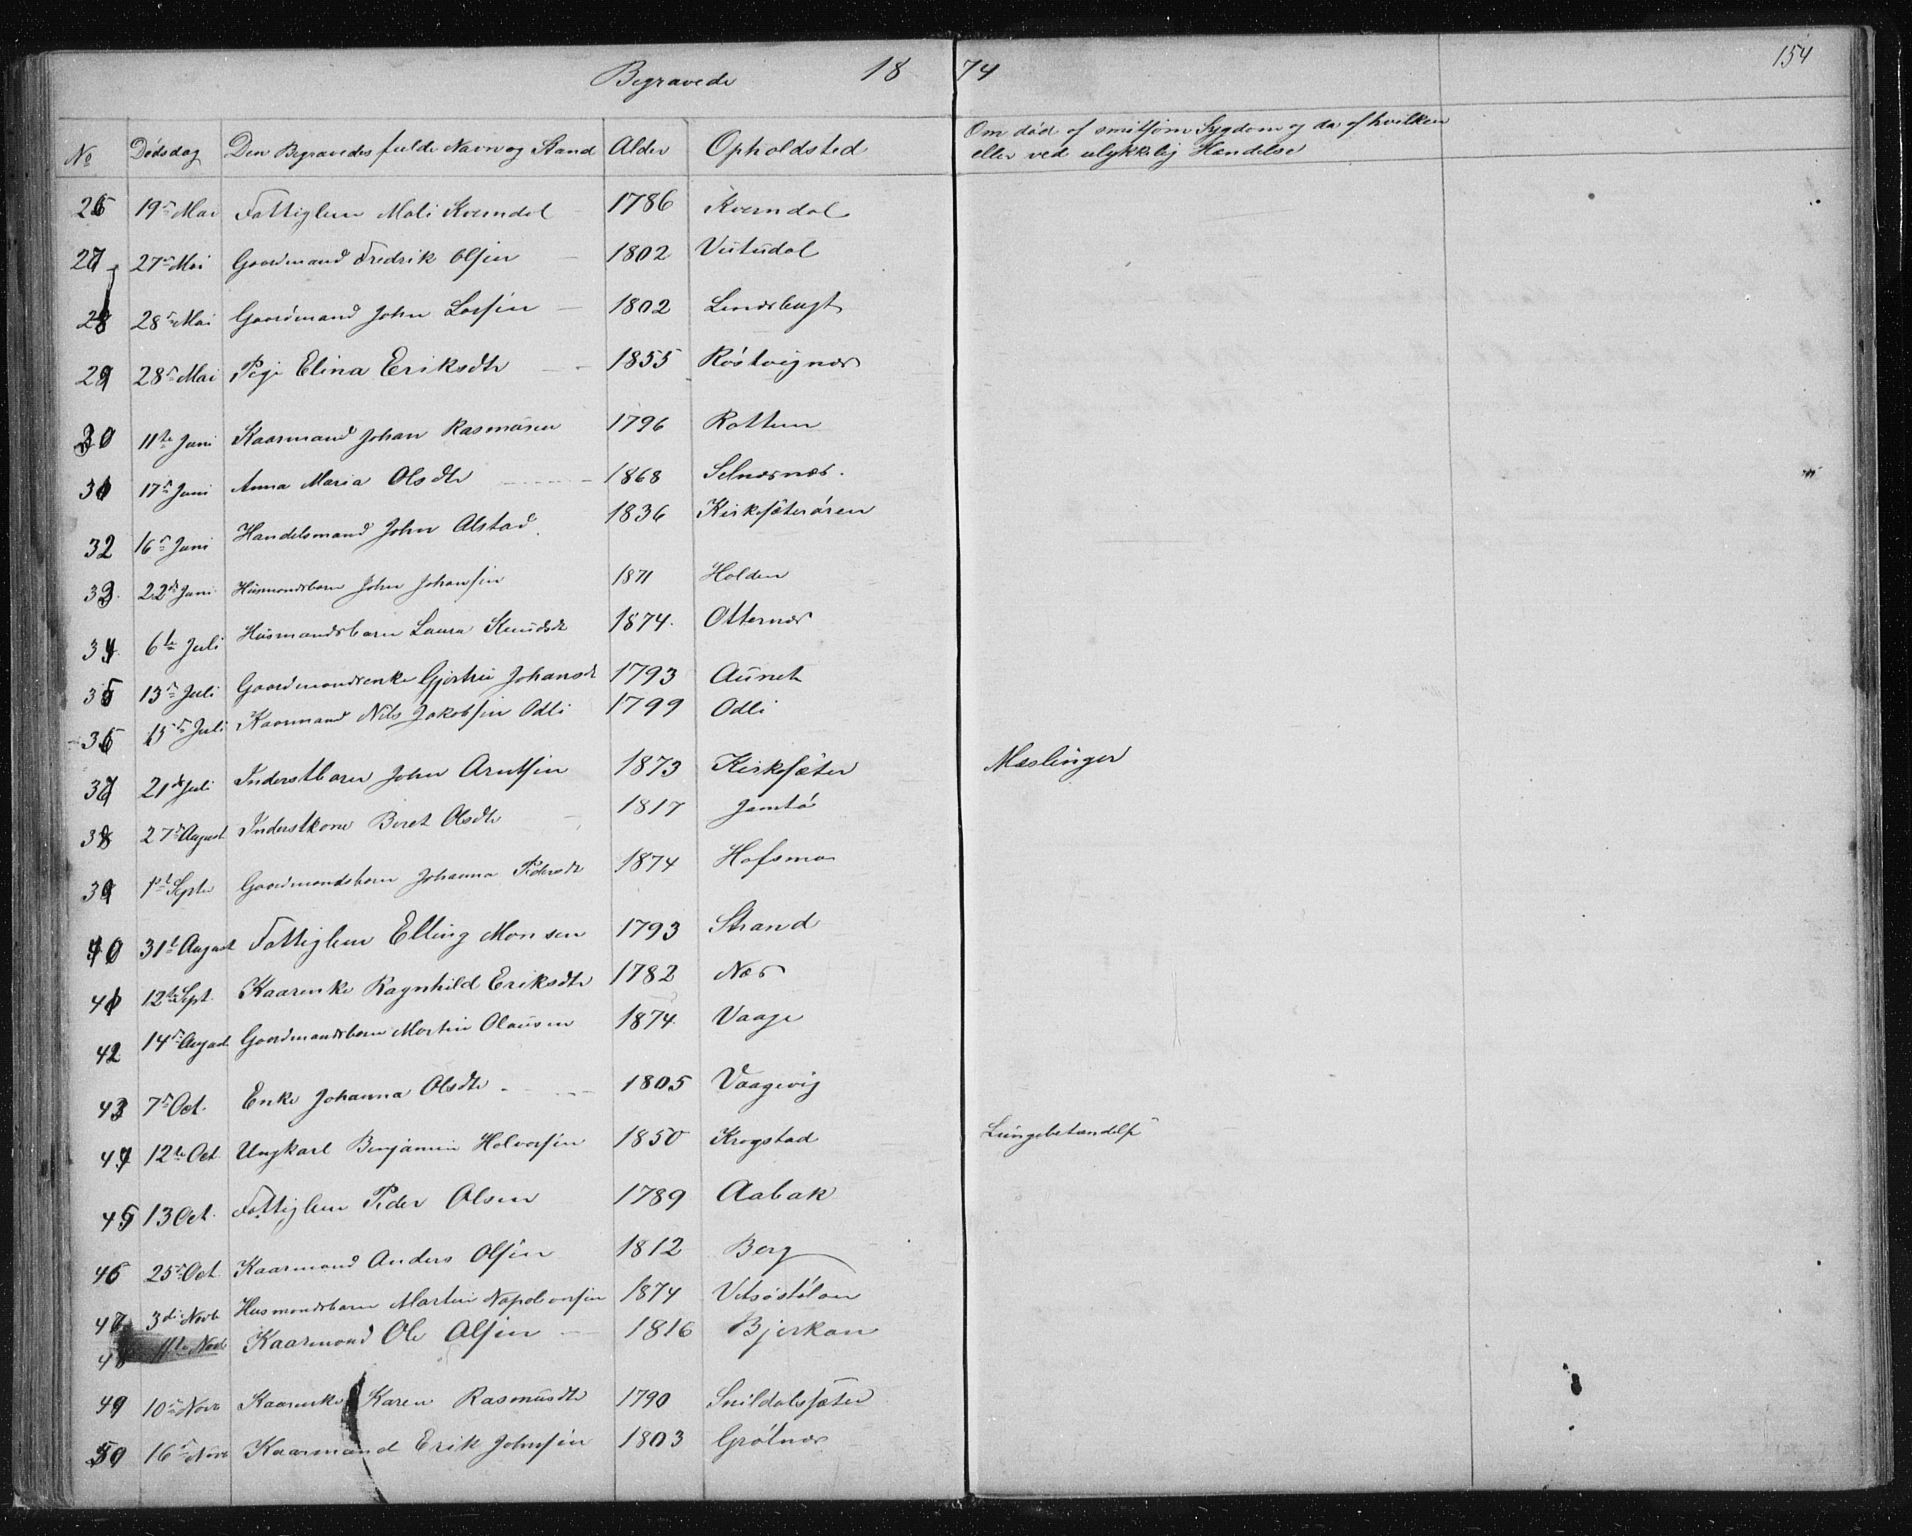 154
Begravede 1874
No Dödsdag Den Begravedes fulde Navn og Stand Alder Opholdsted Om död af smitsom Sygdom og da af hvilken
eller ved ulykkelig Hændelse
26 19de Mai Fattiglem Mali Kverndal 1786 Kverndal
27 27de Mai Gaardmand Fredrik Olsen 1802
28 28de Mai Gaardmand John Larsen 1802
29 28de Mai Pige Elina Eriksdtr 1855 Röstvignæs
30 11te Juni Kaarmand Johan Rasmusen 1796 Rottem
31 17de Juni Anna Maria Olsdtr 1868 Selnæsnæs.
32 16de Juni Handelsmand John Alstad 1836 Kirkesæterören
33. 22de Juni Husmandsbarn John Johansen 1871 Holden
34. 6te Juli Husmandsbarn Laura Knudsdtr 1874. Otternæs
35 13de Juli Gaardmandsenke Gjertru Johansdt 1793 Aunet
36 15de Juli Kaarmand Nils Jakobsen Odli 1799 Odli
37 21de Juli Inderstbarn John Arntsen 1873 Kirkesæter Mæslinger
38 27de August Inderstkone Beret Olsdtr 1817 Jamtö
39 1ste Septr Gaardmandsbarn Johanna Pedersdt 1874 Hofsmo
40 31te August Fattiglem Elling Monsen 1793 Strand
41 12te Sept. Kaarenke Ragnhild Eriksdtr 1782 Næs
42 14de August Gaardmandsbarn Martin Olausen 1874. Vaage
43 7de Oct. Enke Johanna Olsdtr 1805 Vaagevig
44 12te Oct Ungkarl Benjamin Halvorsen 1850 Krogstad Lungebetændelse
45 13 Oct. Fattiglem Peder Olsen 1789 Aabak
46 25de Oct Kaarmand Anders Olsen 1812 Berg
47 3die Novb Husmandsbarn Martin Napoleonsen 1874
48 11te Novb Kaarmand Ole Olsen 1816 Bjerkan
49 10de Novb Kaarenke Karen Rasmusdtr 1790 Snildalssæter
50 16de Novb Kaarmand Erik Johnsen 1803 Grötnæs